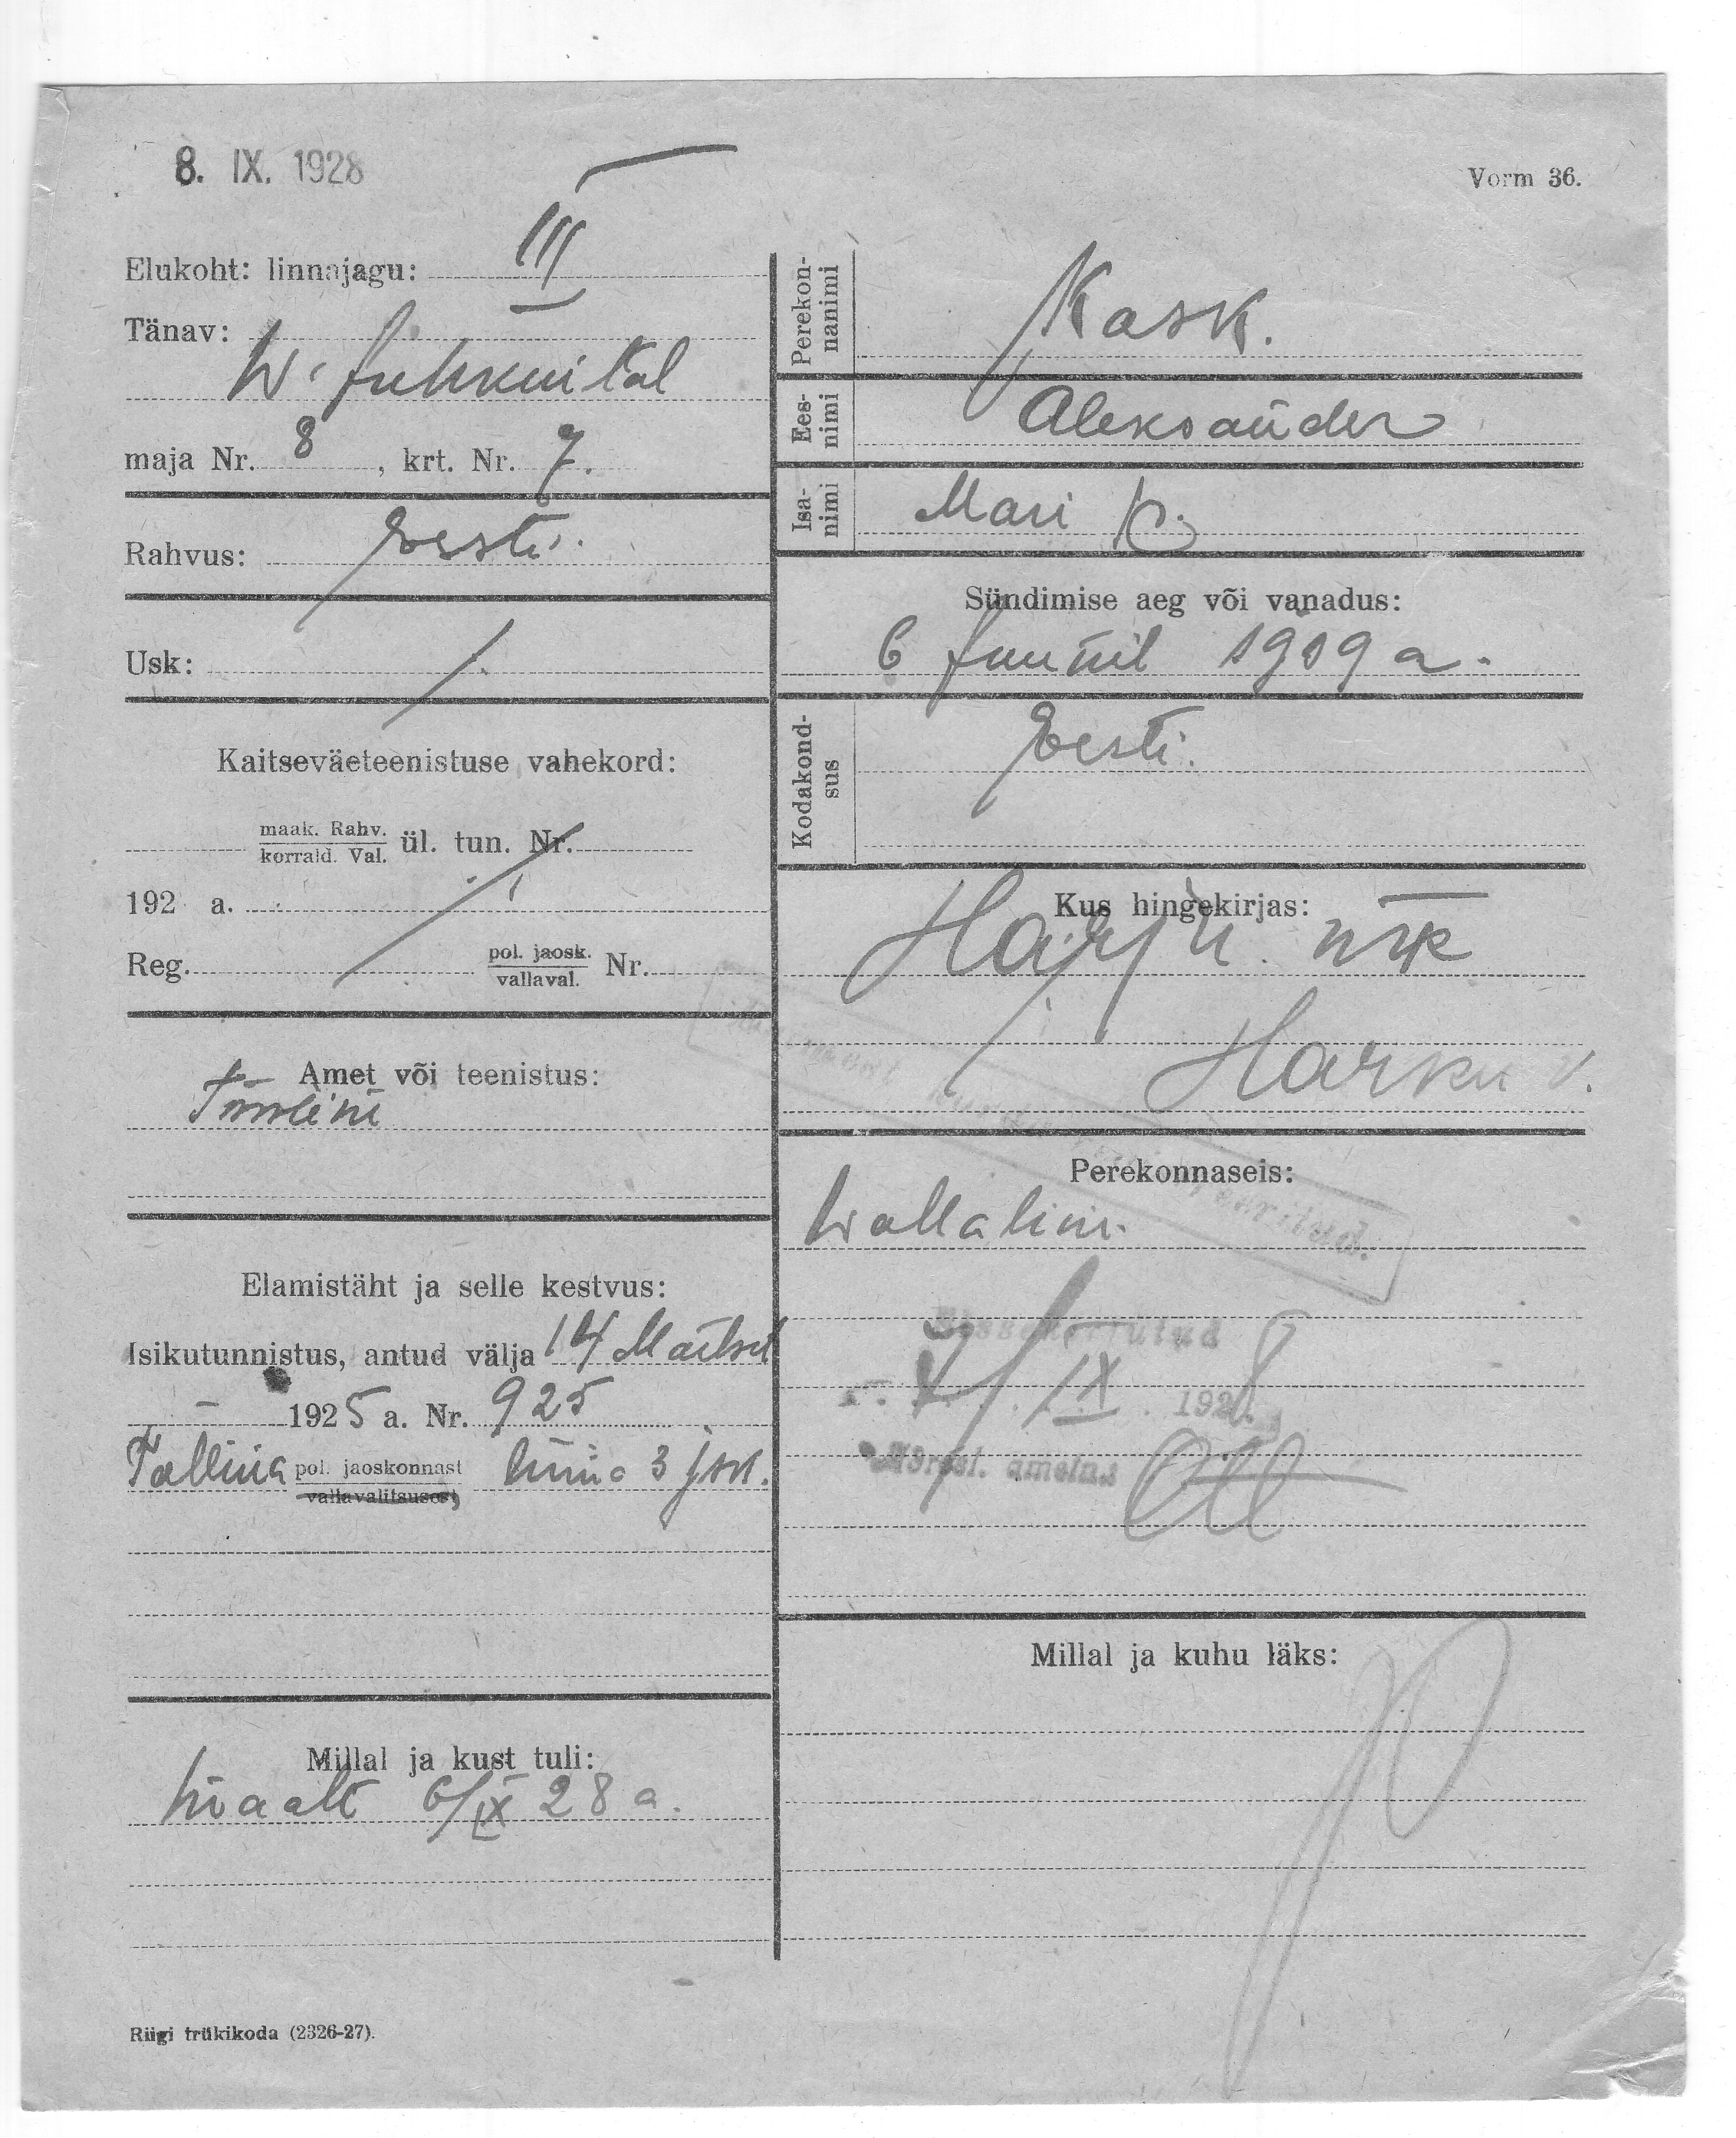 8. IX. 1928
Vorm 36.
Elukoht: linnajagu: III
Tänav:
W. Juhkuital
maja Nr. 8, krt. Nr. 7.
Rahvus: Eesti.
Usk:
Kaitseväeteenistuse vahekord:
maak. Rahv.
korrald. Val. ül. tun. Nr.
192 a.
Reg. pol. jaosk.
vallaval. Nr.
Amet või teenistus:
Elamistäht ja selle kestvus:
Isikutunnistus, antud välja 14 Märtsil
1925 a. Nr. 925
Tallina pol. jaoskonnast linna 3 jsk.
vallavalitsusest,
Millal ja kust tuli:
6/IX 28 a.
Riigi trükikoda (2326-27).
Perekon-
nanimi
Kask.
Ees-
nimi
Aleksander
Isa-
nimi
Mari p.
Sündimise aeg või vanadus:
6 Juunil 1909 a.
Kodakond-
sus
Eesti.
Kus hingekirjas:
Harju mk
Harku v.
Perekonnaseis:
Wallaline.
Sissekirjutud
IX 1928
ametnik
Millal ja kuhu läks: